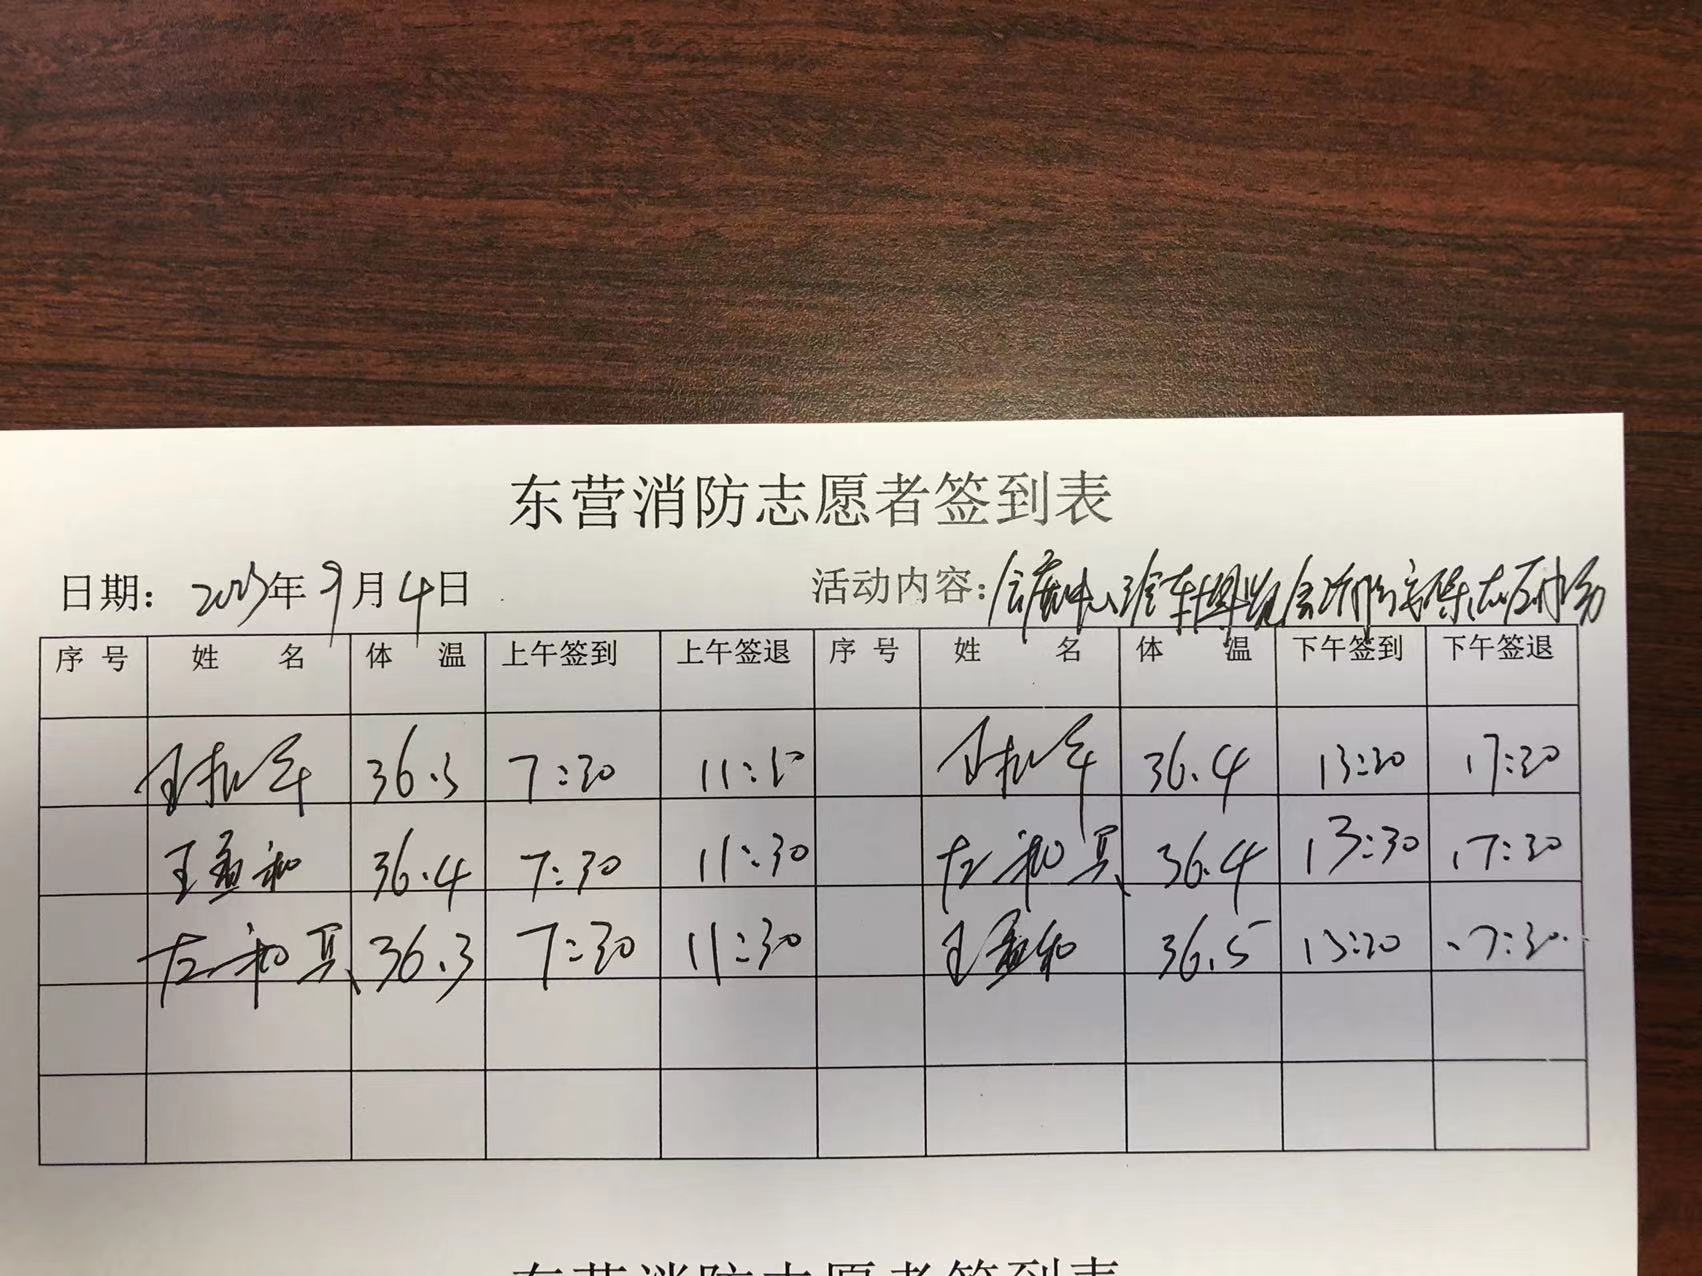 东营消防志愿者签到表
日期： 2023年 9月 4日 活动内容：会展中心汽车博览会消防安保志愿活动
序号 姓名 体温 上午签到 上午签退 序号 姓名 体温 下午签到 下午签退
36.3 7:30 11:30 36.4 13:30 17:30
王孟和 36.4 7:30 11:30 左和具 36.4 13:30 17:30
左和具 36.3 7:30 11:30 王孟和 36.5 13:30 17:30
东营消防志愿者签到表